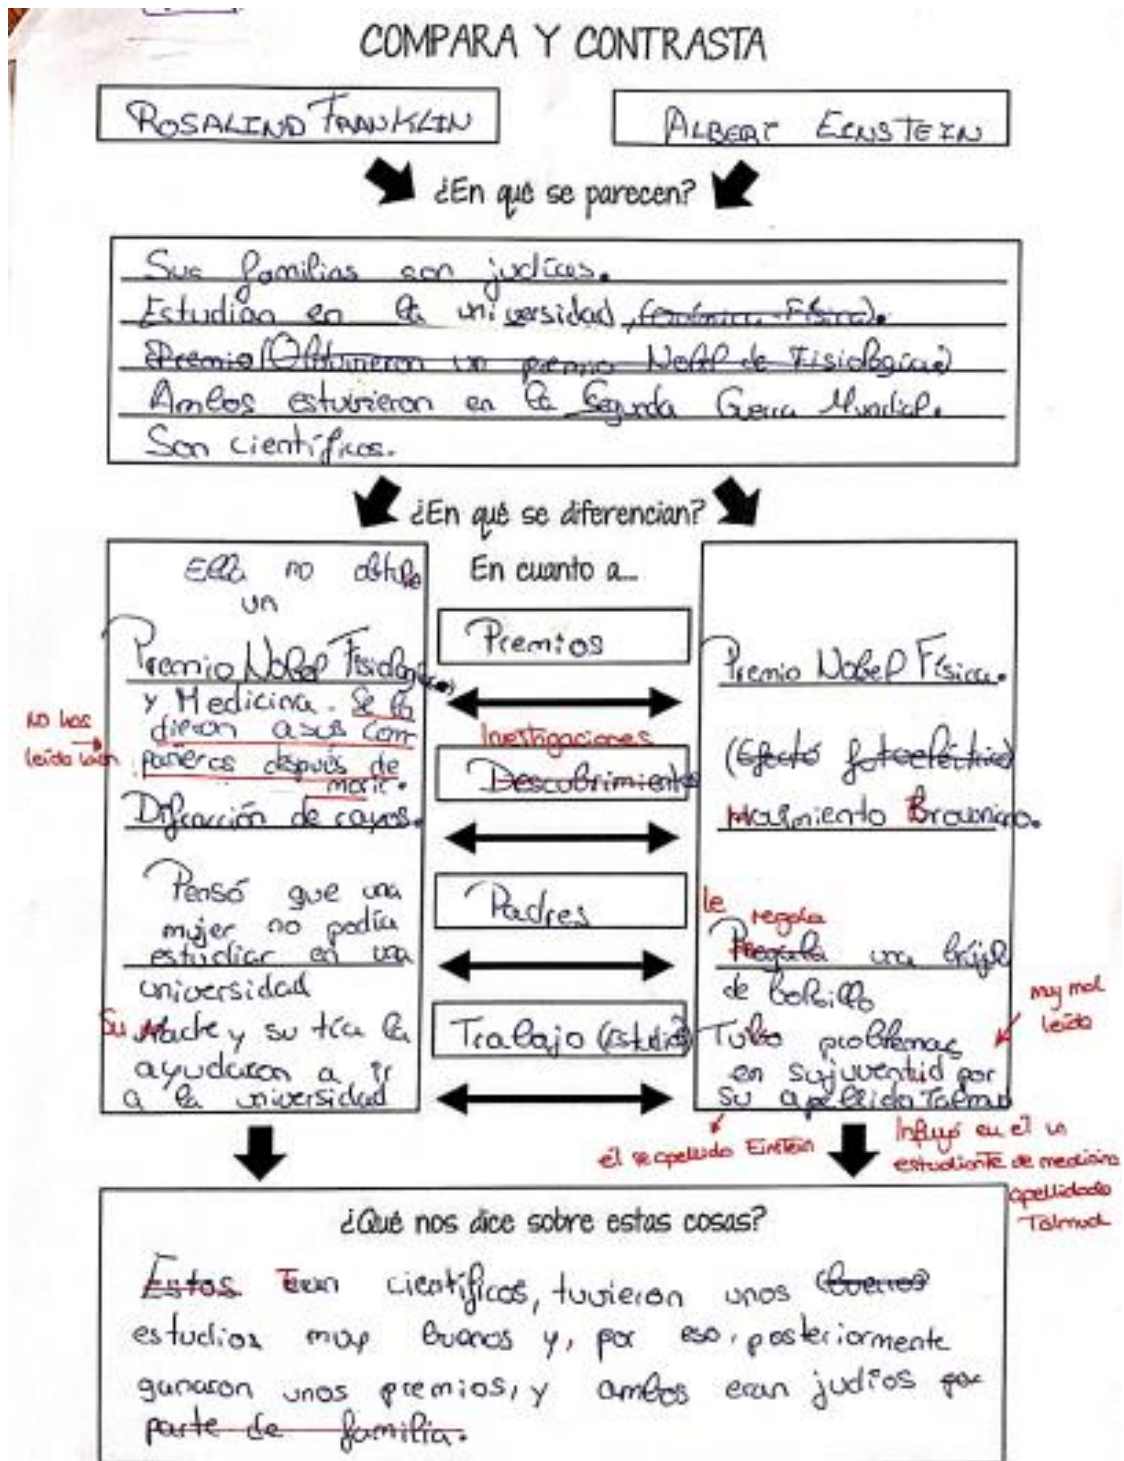 COMPARA Y CONTRASTA
ROSALIND FRANKLIN
ALBERT EINSTEIN
¿En qué se parecen?
Sus familias son judías.
Estudian en la universidad
Premio (Obtuvieron un premio Nobel de Fisiología)
Ambos estuvieron en la Segunda Guerra Mundial.
Son científicos.
¿En qué se diferencian?
En cuanto a...
Ella no obtubo
un
Premio Nobel Fisiología
y Medicina. Se lo
dieron a sus com
pañeros después de
morir.
No has
leído bien
Difracción de rayos.
Pensó que una
mujer no podía
estudiar en una
universidad
Su Madre y su tía la
ayudaron a ir
a la universidad
Premios
Investigaciones
Descubrimientos
Padres
Trabajo (Estudio)
Premio Nobel Física.
(Efecto fotoeléctrico)
Movimiento Browniano.
le regala
una brújula
de bolsillo
Tubo problemas
en su juventud por
su apellido Talmud
muy mal
leído
él se apellida Einstein
Influyó en él un
estudiante de medicina
apellidado
Talmud
¿Qué nos dice sobre estas cosas?
Estos Eran científicos, tuvieron unos (buenos)
estudios muy buenos y, por eso, posteriormente
ganaron unos premios, y ambos eran judíos por
parte de familia.